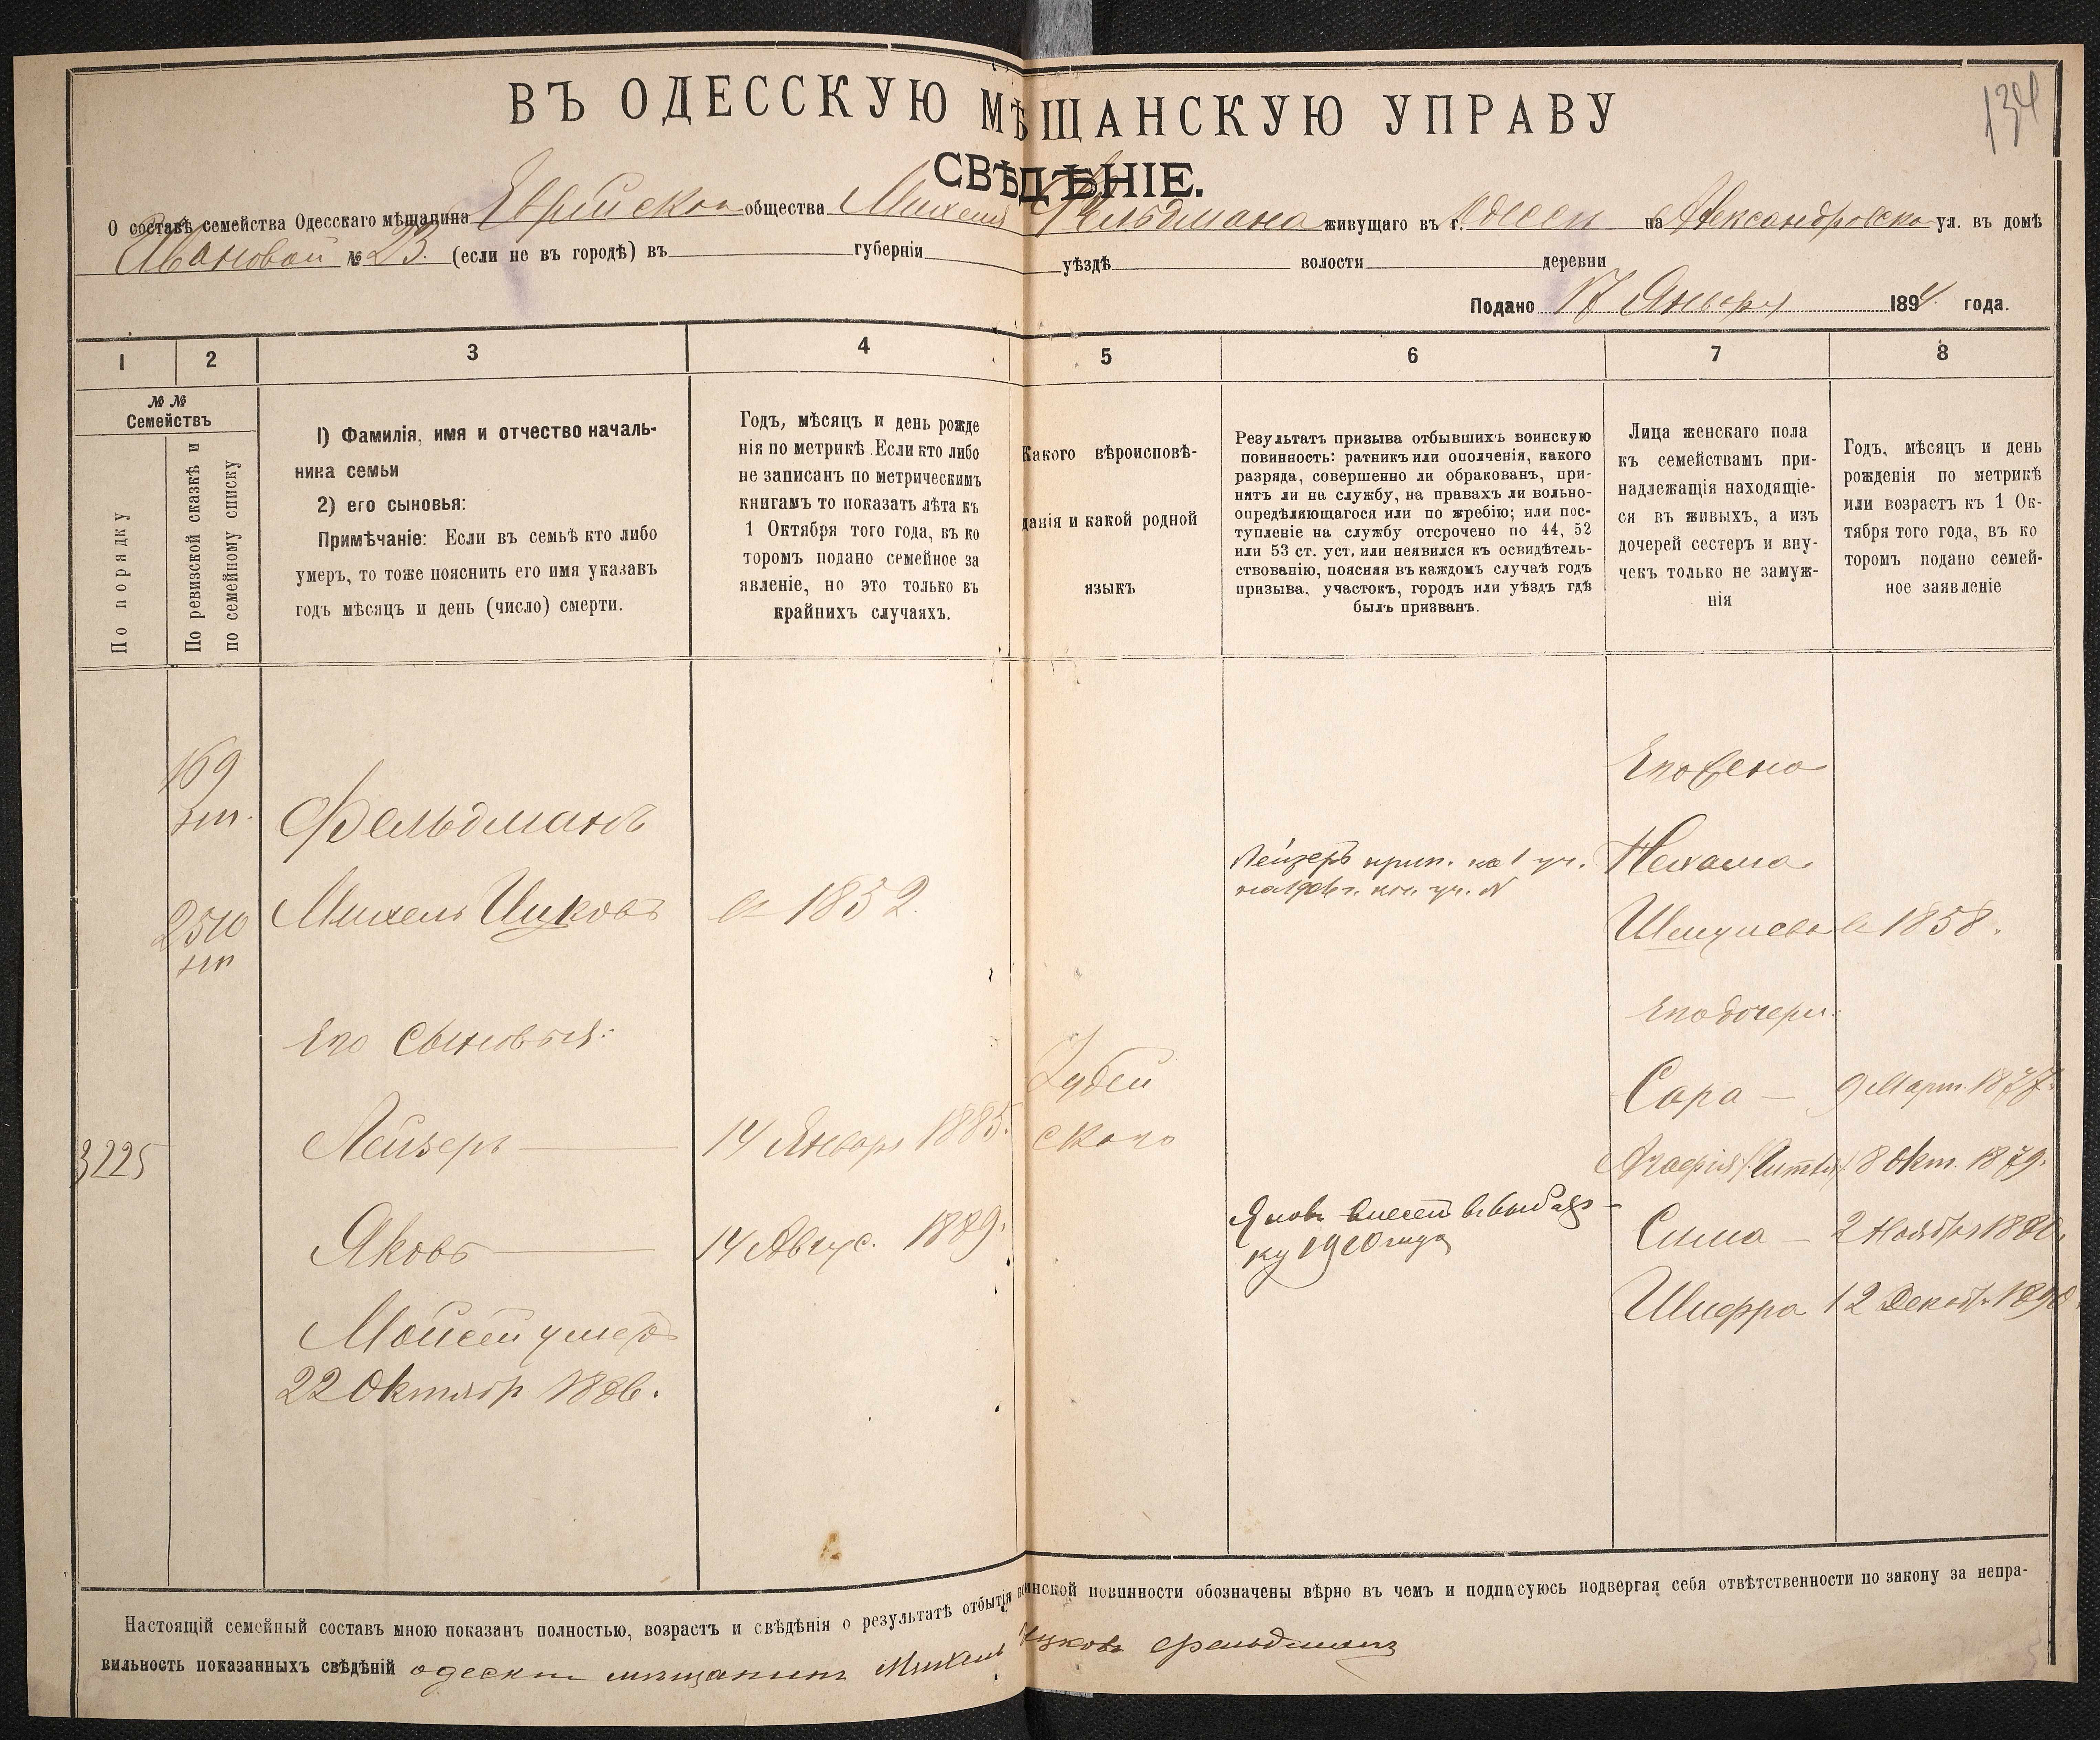 134
ВЪ ОДЕССКУЮ МѢЩАНСКУЮ УПРАВУ
СВѢДѢНІЕ.
О составѣ семейства Одесскаго мѣщанина Еврейскаго общества Михеля Фельдмана живущаго въ г. Одессѣ на Александровско ул. въ домѣ
Ивановой № 23. (если не въ городѣ) въ губерніи уѣздѣ волости деревни
Подано 17 Января 1894. года.
1 2 3 4 5 6 7 8
№ №
Семействъ
По порядку
По ревизской сказкѣ и
по семейному списку
1) Фамилія, имя и отчество началь-
ника семьи
2) его сыновья:
Примѣчаніе: Если въ семьѣ кто либо
умеръ, то тоже пояснить его имя указавъ
годъ мѣсяцъ и день (число) смерти.
Годъ, мѣсяцъ и день рожде
нія по метрикѣ. Если кто либо
не записанъ по метрическимъ
книгамъ то показать лѣта къ
1 Октября того года, въ ко
торомъ подано семейное за
явленіе, но это только въ
крайнихъ случаяхъ.
Какого вѣроисповѣ-
данія и какой родной
языкъ
Результатъ призыва отбывшихъ воинскую
повинность: ратникъ или ополченія, какого
разряда, совершенно ли обракованъ, при-
нятъ ли на службу, на правахъ ли вольно-
опредѣляющагося или по жребію; или пос-
тупленіе на службу отсрочено по 44, 52
или 53 ст. уст. или неявился къ освидѣтель-
ствованію, поясняя въ каждомъ случаѣ годъ
призыва, участокъ, городъ или уѣздъ гдѣ
былъ призванъ.
Лица женскаго пола
къ семействамъ при-
надлежащія находящіе-
ся въ живыхъ, а изъ
дочерей сестеръ и вну-
чекъ только не замуж-
нія
Годъ, мѣсяцъ и день
рожденія по метрикѣ
или возрастъ къ 1 Ок-
тября того года, въ ко
торомъ подано семей-
ное заявленіе
169
Фельдманъ
2510
Михель Ицковъ
въ 1852.
Его сыновья:
3225
Лейзеръ
14 Января 1885.
Яковъ
14 Авгус. 1889.
Мойсей умеръ
22 Октябр 1886.
Іудей
скаго
Лейзеръ прип. на 1 уч.
на 1906 г.
Яковъ внесен въ выб
ку 1910 года
Его жена
Нехама
Шмулева въ 1858.
Его дочери:
Сара — 9 Март. 1877.
8 Окт. 1879.
Сима — 2 Ноября 1880.
Шифра 12 Декабр 1890.
Настоящій семейный составъ мною показанъ полностью, возрастъ и свѣдѣнія о результатѣ отбытія воинской повинности обозначены вѣрно въ чемъ и подписуюсь подвергая себя отвѣтственности по закону за непра-
вильность показанныхъ свѣдѣній одескі мѣщанинъ Михель Ицковъ Фельдманъ